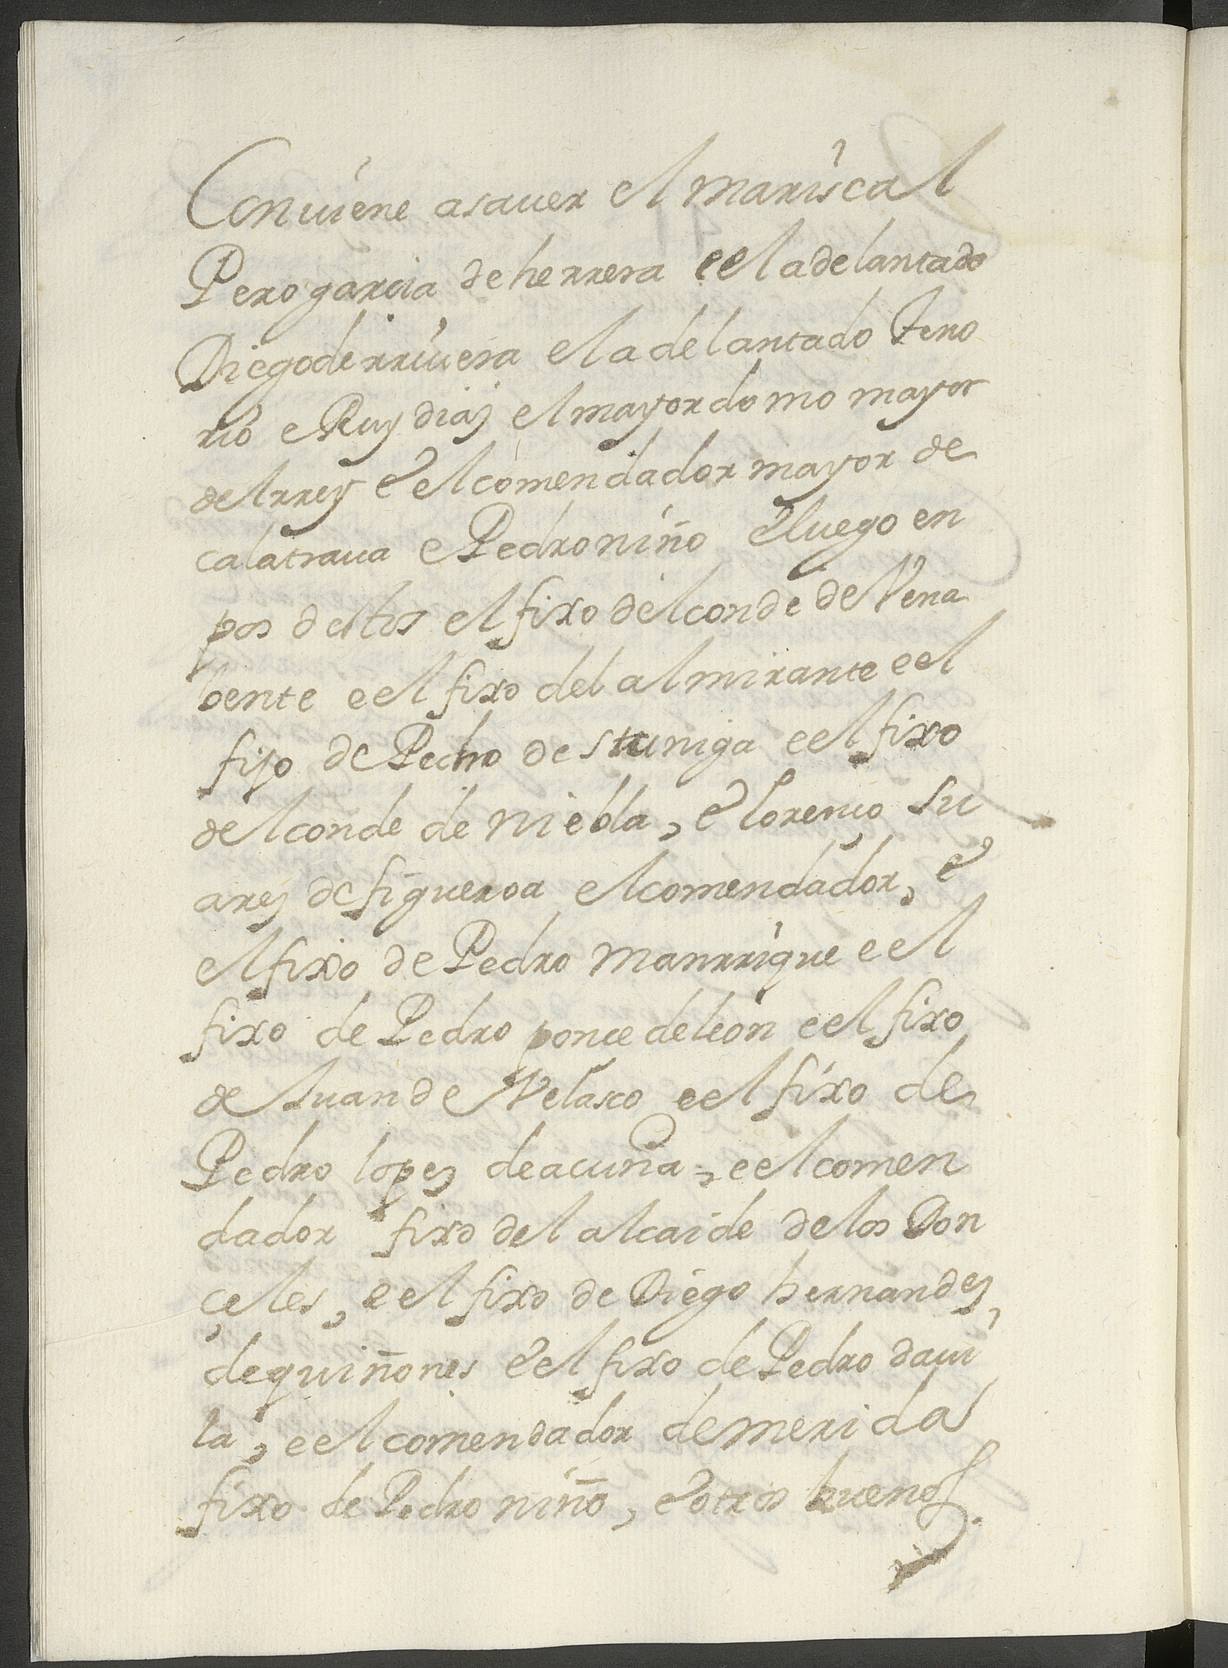 Conuiene asauer el mariscal
Pero garcia de herrera e el adelantado
Diego de rriuera el adelantado Teno
rio e Ruy diaz el mayordomo mayor
del rrey e el comendador mayor de
calatraua e Pedro niño e luego en
pos dellos el fixo del conde de Vena
bente e el fixo del almirante e el
fijo de Pedro de stuniga e el fixo
del conde de niebla, e lorenço su
arez de figueroa el comendador, e
el fixo de Pedro manrrique e el
fixo de Pedro ponce de leon e el fixo
de Juan de Velasco e el fixo de
Pedro lopez de acuña, e el comen
dador fixo del alcaide de los Don
çeles, e el fixo de Diego hernandez
de quiñones e el fixo de Pedro daui
la, e el comendador de merida
fixo de Pedro niño, e otros buenos